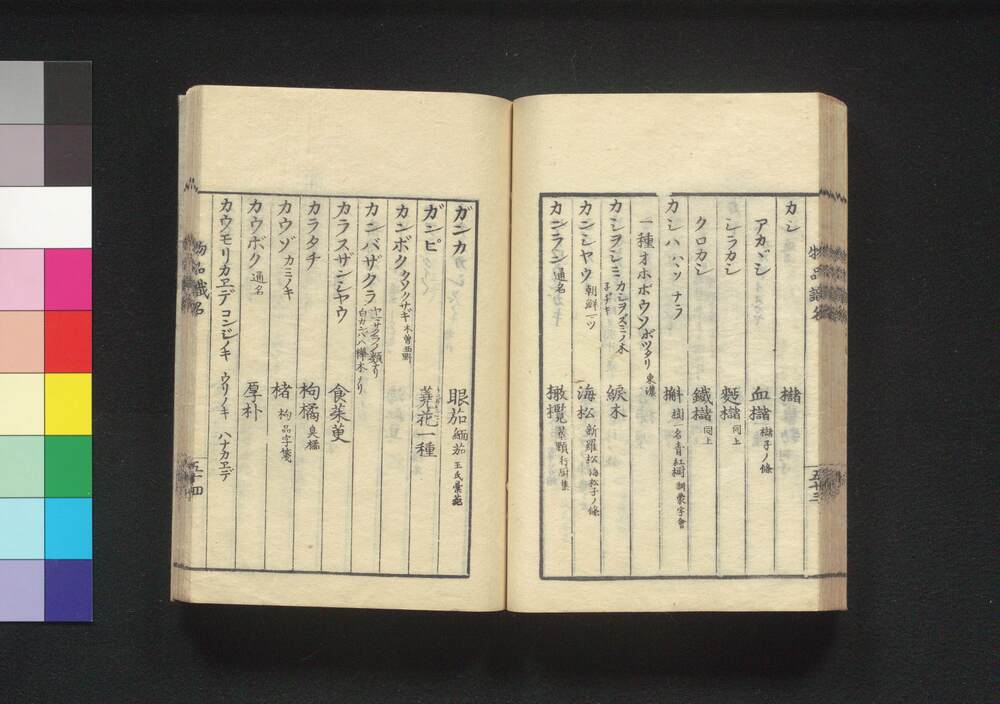 カシ 櫧
アカヾシ 血櫧 櫧子ノ條
シラカシ 麪櫧 同上
クロカシ 鐵櫧 同上
カシハ ハヽソ ナラ 槲 槲一名青紅桐 訓蒙字會
一種オホボウソ ボツタリ 東濃
カシヲシミ カシヲズミノ木 綟木
カンシヤウ 朝鮮マツ 海松 新羅松 海松子ノ條
カンラン 通名 橄欖 景顆 行厨集
物品識名
五十三
ガンカ 眼茄 緬茄 王氏彙苑
ガンピ 蕘花一種
カンボク クソクサギ 木曽西野
カンバザクラ ヤマサクラノ類ナリ 白カンバハ樺木ナリ
カラスザンシヤウ 食茱萸
カラタチ 枸橘 臭橘
カウゾ カミノキ 楮 枸 品字箋
カウボク 通名 厚朴
カウモリカヱデ コンジノキ ウリノキ ハナカヱデ
物品識名
五十四